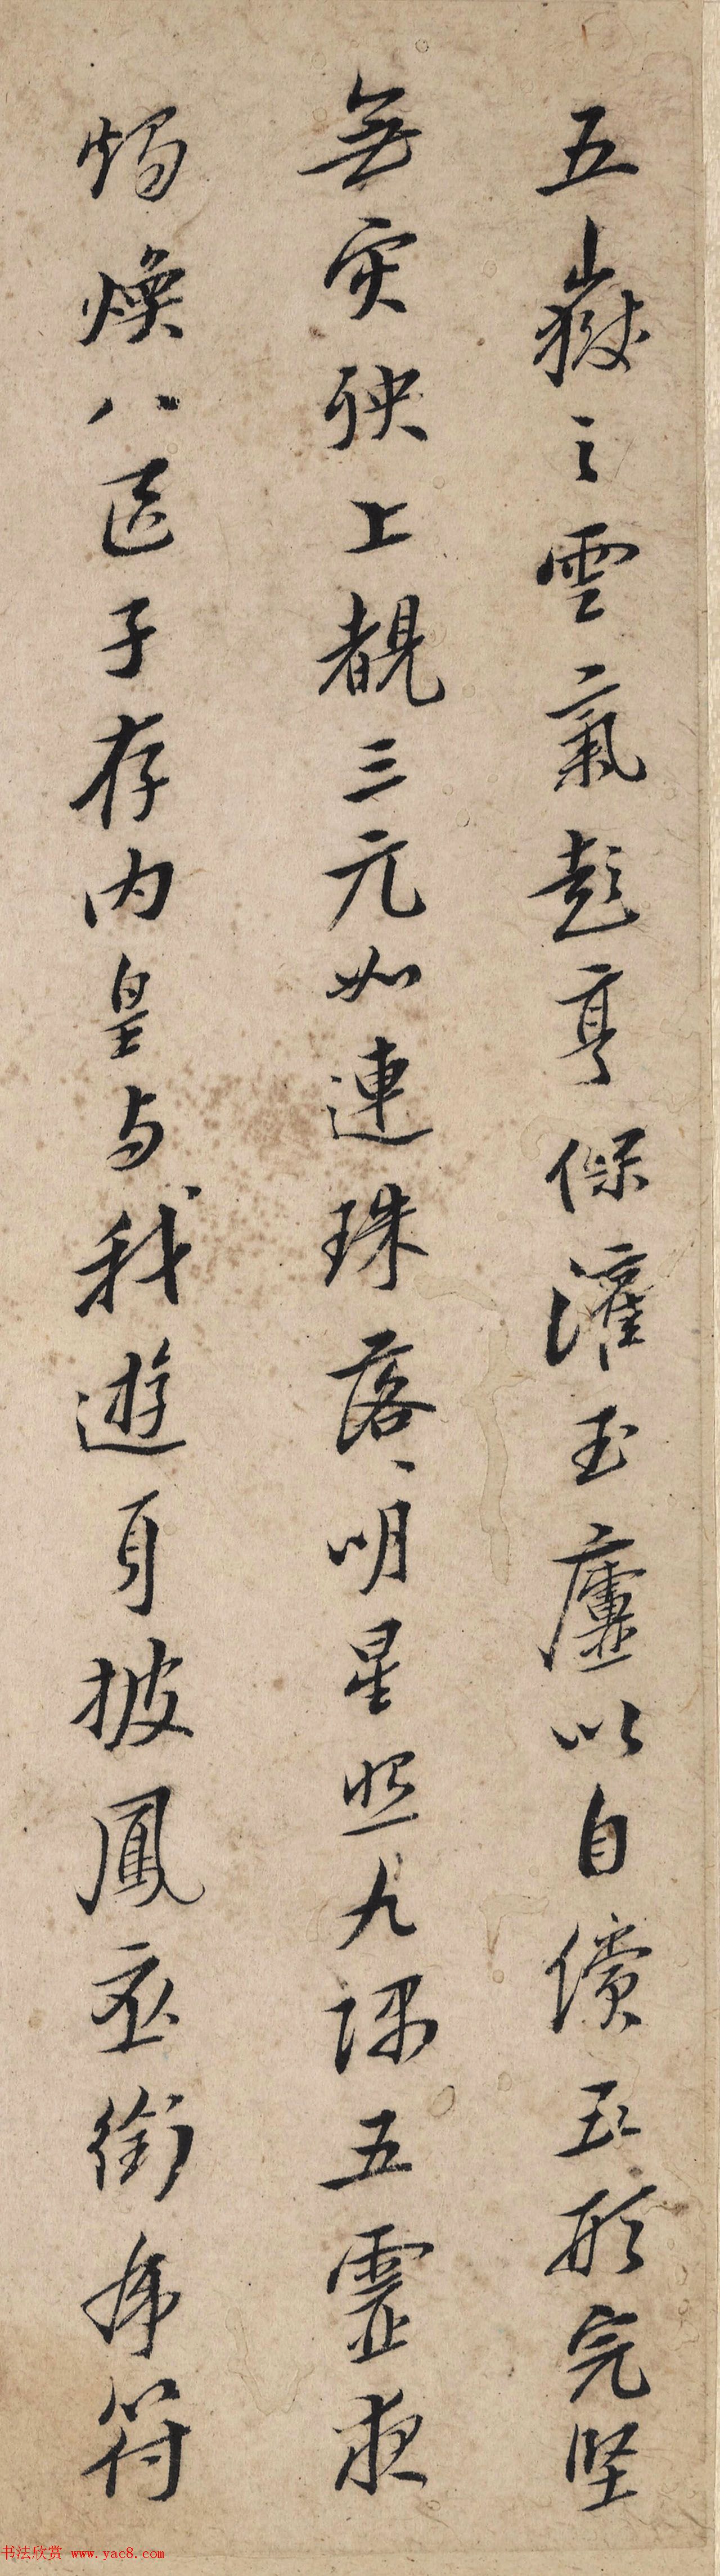 五嶽之雲氣彭亨保灌玉廬以自償五形完堅
無灾殃上覩三元如連珠落落明星照九隅五靈夜
燭煥八區子存内皇与我遊身披鳳衣銜虎符
书法欣赏 www.yac8.com